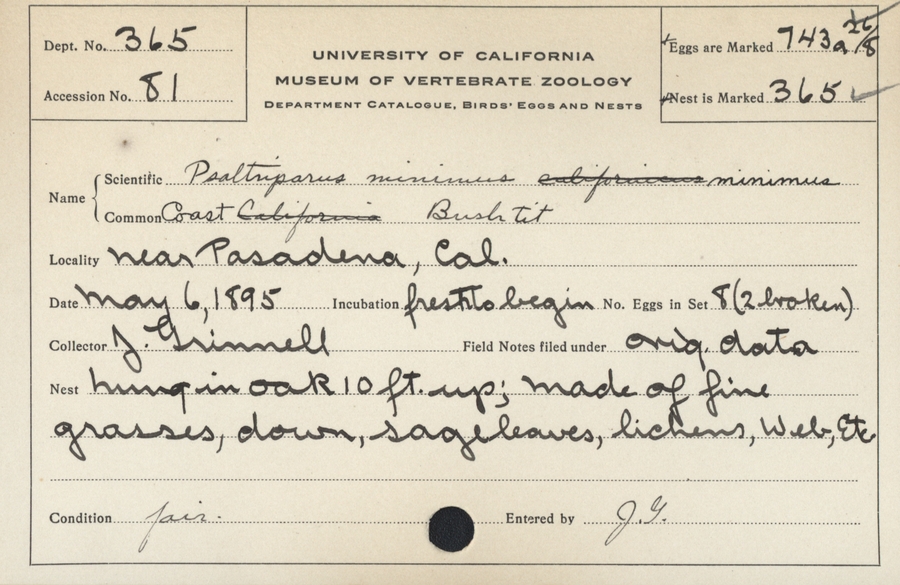 Dept. No. 365
Accession No. 81
UNIVERSITY OF CALIFORNIA
MUSEUM OF VERTEBRATE ZOOLOGY
DEPARTMENT CATALOGUE, BIRDS' EGGS AND NESTS
Eggs are Marked 743a 26/8
Nest is Marked 365 ✓
Name
Scientific Psaltriparus minimus californicus minimus
Common Coast California Bush tit
Locality near Pasadena, Cal.
Date May 6, 1895 Incubation fresh to begin No. Eggs in Set 8 (2 broken)
Collector J. Grinnell Field Notes filed under orig. data
Nest hung in oak 10 ft. up; made of fine
grasses, down, sage leaves, lichens, Web, Etc
Condition fair.
Entered by J.G.